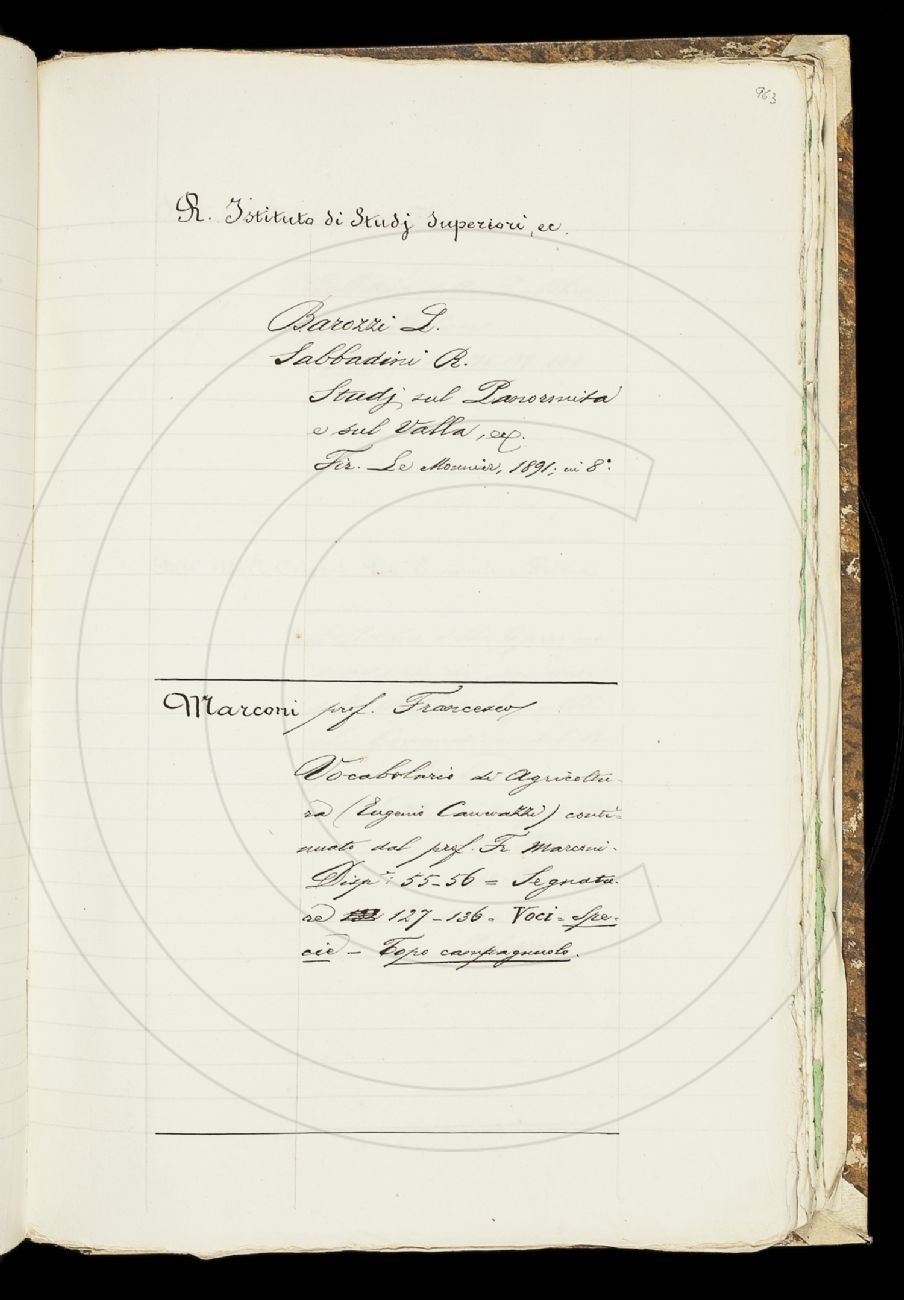 963
R. Istituto di Studj Superiori, ec.
Barozzi L.
Sabbadini R.
Studj sul Panormita
e sul Valla, ec.
Fir. Le Monnier, 1891; in 8°.
Marconi prof. Francesco
Vocabolario di Agricoltu-
ra (Eugenio Canevazzi) conti=
nuato dal prof. Fr. Marconi.
Disp.e 55-56 = Segnatu-
re 127-136 = Voci = Spe-
cie - Topo campagnuolo.